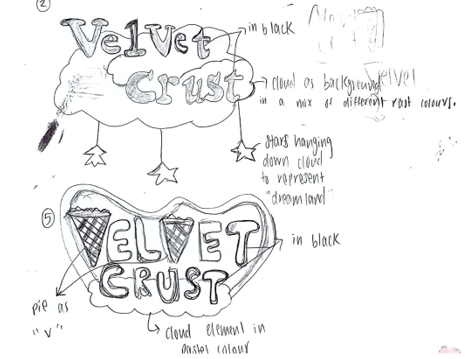 ②
Velvet
Crust
in black
cloud as background
in a mix of different past colours.
Velvet
stars hanging
down cloud
to represent
"dreamland"
⑤
VELVET
CRUST
in black
pie as
"V"
cloud element in
pastel colour